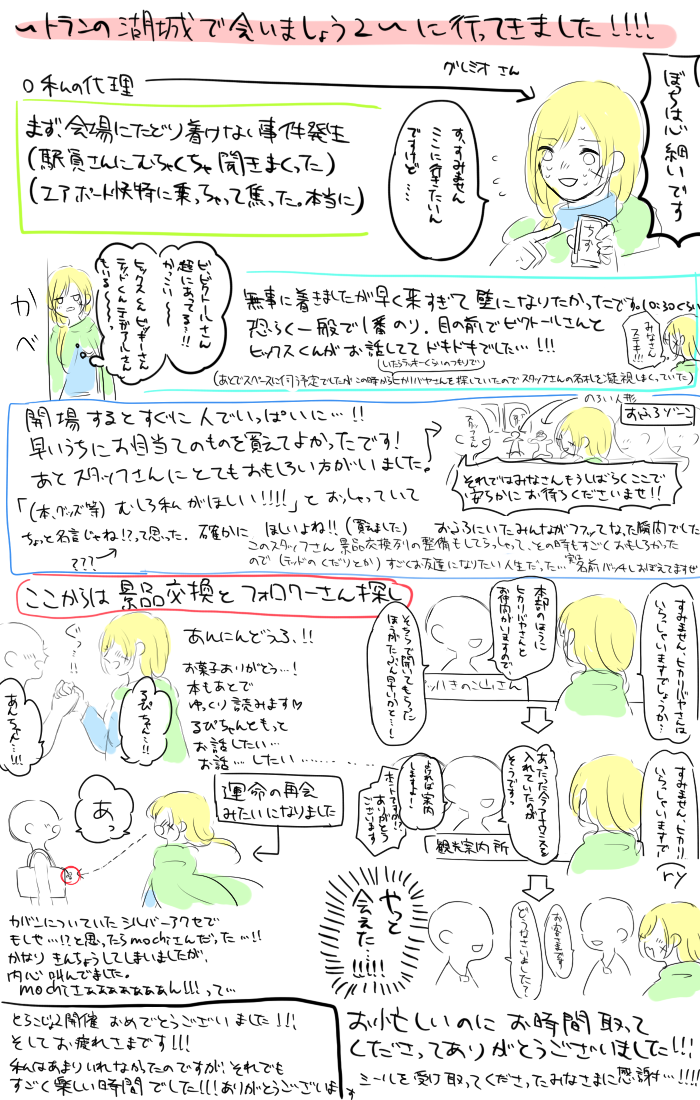 〜トランの湖城で会いましょう2〜に行ってきました!!!!
○私の代理
グレミオさん
ぼっちは心細いです
す、すみません
ここに行きたいん
ですけど…
まず、会場にたどり着けない事件発生
(駅員さんにむちゃくちゃ聞きまくった)
(エアポート快特に乗っちゃって焦った。本当に)
かべ
ビビクトールさん
超にあってる?!!
かっこい〜〜〜
ヒックスくんビッキーさん
テッドくんテンガアールさん
もいる〜〜〜
無事に着きましたが早く来すぎて壁になりたかったです。10:30くらい
恐らく一般で1番のり。目の前でビクトールさんと
ヒックスくんがお話ししててドキドキでした…!!!
みなさん
ステキ!!!
いたらラッキーくらいのつもりで
(あとでスペースに伺う予定でしたがこの時からヒカリバヤさんを探していたのでスタッフさんの名札を凝視しまくっていた)
開場するとすぐに人でいっぱいに…!!
早いうちにお目当てのものを買えてよかったです!
あとスタッフさんにとてもおもしろい方がいました。
「(本、グッズ等)むしろ私がほしい!!!!」とおっしゃっていて
ちょっと名言じゃね!?って思った。確かにほしいよね!!(買えました)
???
のろい人形
おふろゾーン
スタッフさん
それではみなさんもうしばらくここで
あらかにお待ちくださいませ!!
おふろにいたみんながフフッてなった瞬間でした
このスタッフさん景品交換列の整備もしてらっしゃって、その時もすごくおもしろかった
ので(テッドのくだりとか)すごくお友達になりたい人生だった…実は名前バッチしおぼえてますぜ
ここからは景品交換とフォロワーさん探し
ぐっ…!!
あんちゃん…!!!
るぴちゃん…!!!
あんにんどうふ、!!
お菓子ありがとう…!
本もあとで
ゆっくり読みます♡
るぴちゃんともって
お話したい…
お話…したい………
すみません、ヒカリバヤさんは
いらっしゃいますでしょうか…
本部のほうに
ヒカリバヤさんと
お仲間がいますので、
そちらで聞いてもらった
ほうがたぶん早いかと…!
運命の再会
みたいになりました
あっ
カバンについていたシルバーアクセで
もしや…!?と思ったらmochiさんだった…!!
かなりきんちょうしてしまいましたが、
内心叫んでました。
mochiさぁぁぁぁぁぁぁん!!!って…
すみません、ヒカリバ
いらっしゃいますで
ry
よければ案内
しますよ!
ホントですか!?
ありがとう
ございます
観光案内所
やっと
会えた…!!!!!
お客さまです
どうなさいました?
お忙しいのにお時間取って
くださってありがとうございました!!!
ミールを受け取ってくださったみなさまに感謝…!!!!
とらこじ2開催おめでとうございました!!!
そしてお疲れさまです!!!
私はあまりいれなかったのですが、それでも
すごく楽しい時間でした!!!ありがとうございます